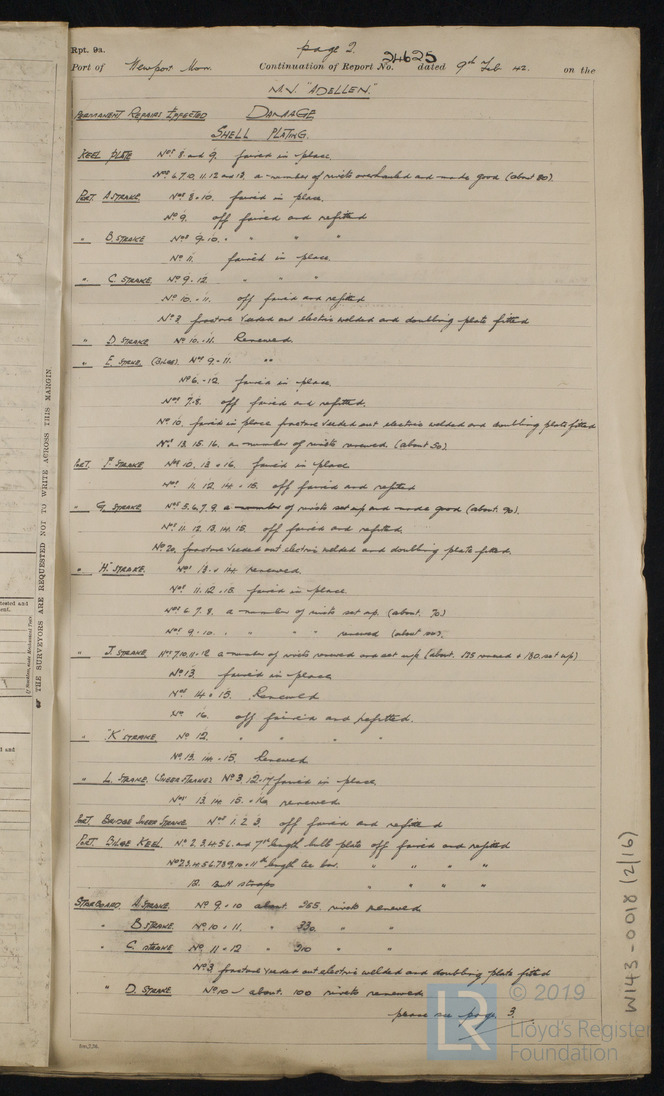 Rpt. 9a. page 2. 24625
Port of Newport Mon. Continuation of Report No. dated 9th Feb. 42. on the
M.V. "ADELLEN."
PERMANENT REPAIRS EFFECTED DAMAGE
SHELL PLATING.
KEEL PLATE Nos 8 and 9. faired in place.
Nos 6.7.9.11.12 and 13. a number of rivets overhauled and made good (about 80).
PORT. A STRAKE Nos 8 + 10. faired in place.
No 9. off faired and refitted
" B. STRAKE Nos 9.10. " " " "
No 11. faired in place.
" C. STRAKE No 9 - 12 " " "
No 10. + 11. off faired and refitted
No 3 fracture veeded out electric welded and doubling plate fitted
" D STRAKE No 10. - 11. Renewed.
" E. STRAKE (BILGE). Nos 9 - 11. "
No 6. - 12. faired in place.
Nos 7.8. off faired and refitted.
No 10. faired in place fracture veeded out electric welded and doubling plate fitted
Nos 13. 15. 16. a number of rivets renewed (about 50)
PORT. F. STRAKE Nos 10. 13 + 16. faired in place
Nos 11. 12. 14. + 15. off faired and refitted
" G STRAKE Nos 5.6.7.9. a number of rivets set up and made good (about 90).
Nos 11. 12. 13. 14. 15. off faired and refitted.
No 20. fracture veeded out electric welded and doubling plate fitted.
" H. STRAKE. Nos 13. + 14. renewed.
Nos 11. 12. + 15. faired in place.
Nos 6. 7. 8. a number of rivets set up (about 70)
Nos 9 - 10. " " " " renewed (about
" J. STRAKE Nos 7.10.11 + 12 a number of rivets renewed and set up (about 175 renewed + 130 set up)
No 13. faired in place
Nos 14 + 15. Renewed
No 16. off faired and refitted.
" "K" STRAKE No 12. " " " "
No 13. 14. + 15. Renewed
" L. STRAKE. (SHEER STRAKE) No 3, 12 + 17 faired in place
Nos 13. 14. 15. + 16 renewed
PORT. BRIDGE SHEER STRAKE Nos 1. 2. 3. off faired and refitted
PORT. BILGE KEEL. No 2.3.4.5.6. and 7th length bulb plate off faired and refitted
No 2.3.4.5.6.7.8.9.10 + 11th length tee bar. " " " "
12. Butt straps " " " "
STARBOARD A STRAKE No 9 + 10 about 365 rivets renewed
" B STRAKE. No 10 + 11. " 330. " "
" C. STRAKE No 11 + 12 " 310 " "
No 3 fracture veeded out electric welded and doubling plate fitted
" D. STRAKE No 10 about 100 rivets renewed
please see page 3.
THE SURVEYORS ARE REQUESTED NOT TO WRITE ACROSS THIS MARGIN.
W143-0018 (2/16)
LR
© 2019
Lloyd's Register
Foundation